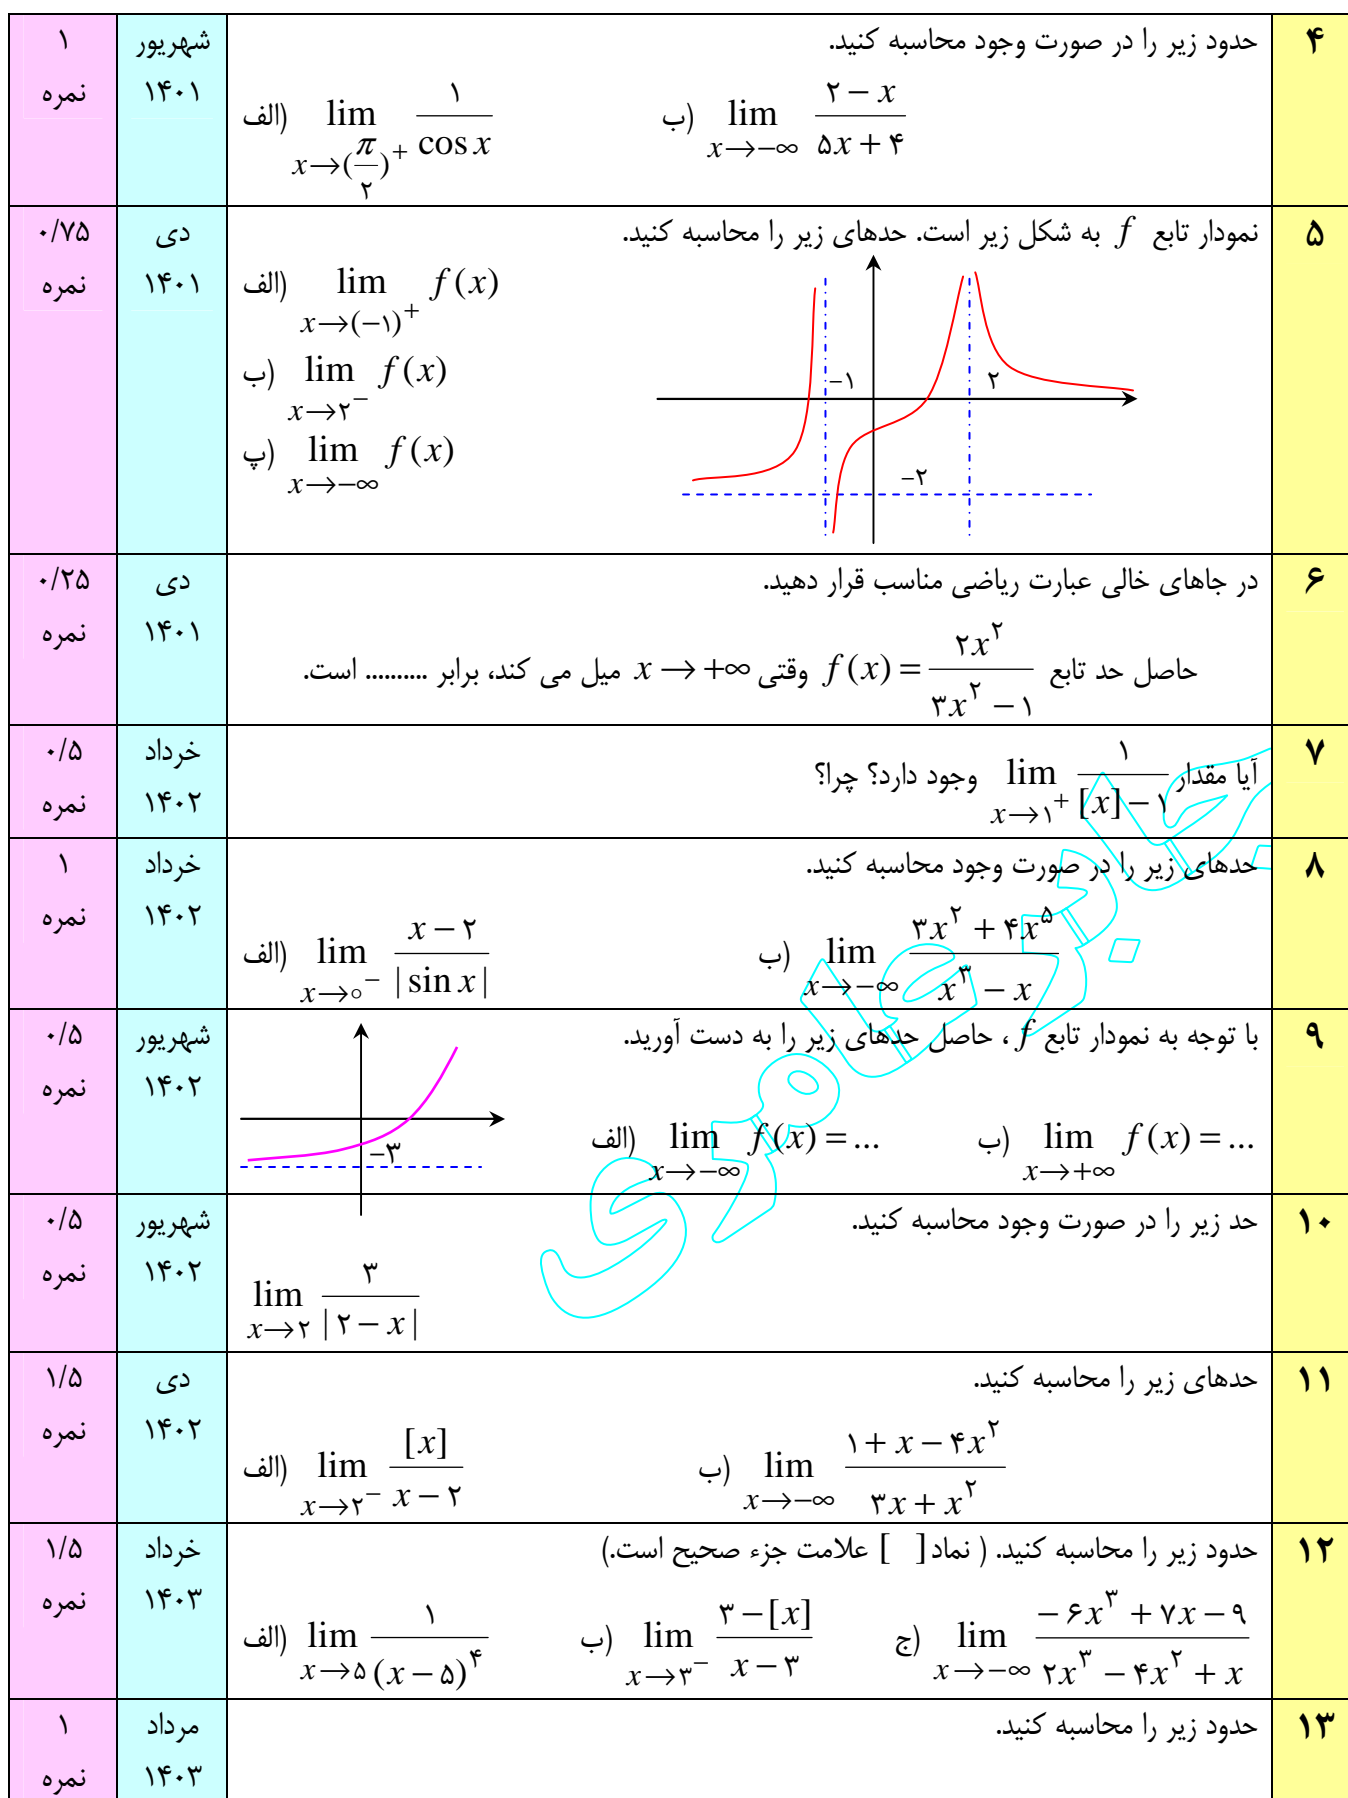 ۴
حدود زیر را در صورت وجود محاسبه کنید.
الف) lim x→(π/۲)⁺ ۱/cos x     ب) lim x→−∞ (۲ − x)/(۵x + ۴)
شهریور ۱۴۰۱
۱ نمره
۵
نمودار تابع f به شکل زیر است. حدهای زیر را محاسبه کنید.
الف) lim x→(−۱)⁺ f(x)
ب) lim x→۲⁻ f(x)
پ) lim x→−∞ f(x)
−۱
۲
−۲
دی ۱۴۰۱
۰/۷۵ نمره
۶
در جاهای خالی عبارت ریاضی مناسب قرار دهید.
حاصل حد تابع f(x) = ۲x²/(۳x² − ۱) وقتی x → +∞ میل می کند، برابر .......... است.
دی ۱۴۰۱
۰/۲۵ نمره
۷
آیا مقدار lim x→۱⁺ ۱/([x] − ۱) وجود دارد؟ چرا؟
خرداد ۱۴۰۲
۰/۵ نمره
۸
حدهای زیر را در صورت وجود محاسبه کنید.
الف) lim x→۰⁻ (x − ۲)/|sin x|     ب) lim x→−∞ (۳x² + ۴x⁵)/(x³ − x)
خرداد ۱۴۰۲
۱ نمره
۹
با توجه به نمودار تابع f ، حاصل حدهای زیر را به دست آورید.
الف) lim x→−∞ f(x) = ...     ب) lim x→+∞ f(x) = ...
−۳
شهریور ۱۴۰۲
۰/۵ نمره
۱۰
حد زیر را در صورت وجود محاسبه کنید.
lim x→۲ ۳/|۲ − x|
شهریور ۱۴۰۲
۰/۵ نمره
۱۱
حدهای زیر را محاسبه کنید.
الف) lim x→۲⁻ [x]/(x − ۲)     ب) lim x→−∞ (۱ + x − ۴x²)/(۳x + x²)
دی ۱۴۰۲
۱/۵ نمره
۱۲
حدود زیر را محاسبه کنید. ( نماد [ ] علامت جزء صحیح است.)
الف) lim x→۵ ۱/(x − ۵)⁴     ب) lim x→۳⁻ (۳ − [x])/(x − ۳)     ج) lim x→−∞ (−۶x³ + ۷x − ۹)/(۲x³ − ۴x² + x)
خرداد ۱۴۰۳
۱/۵ نمره
۱۳
حدود زیر را محاسبه کنید.
مرداد ۱۴۰۳
۱ نمره
جابر عامری